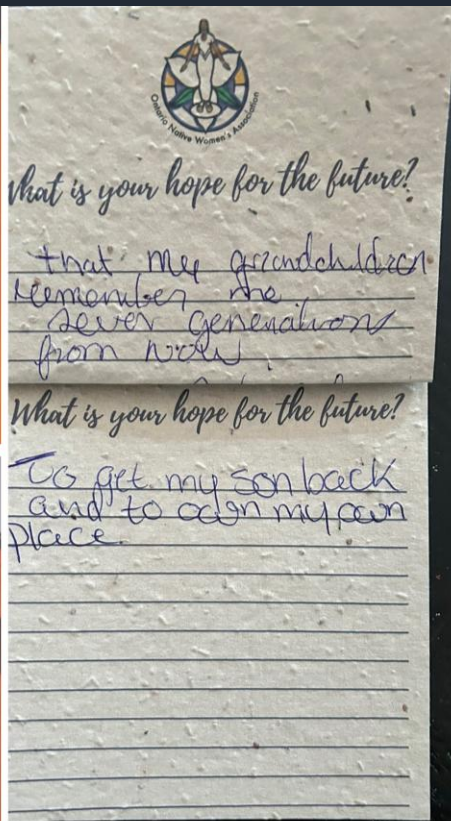 Ontario Native Women's Association
What is your hope for the future?
that my grandchildren
remember me
seven generations
from now
What is your hope for the future?
To get my son back
and to own my own
place.